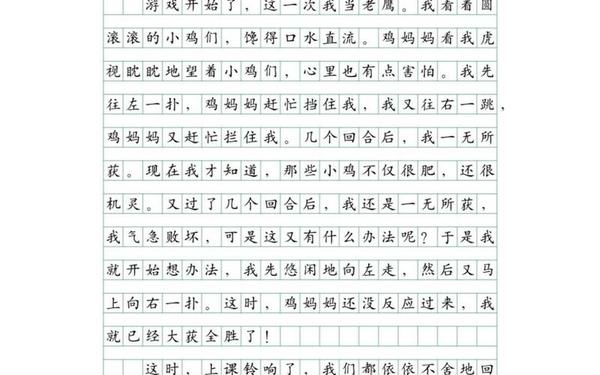 游戏开始了，这一次我当老鹰。我看着圆
滚滚的小鸡们，馋得口水直流。鸡妈妈看我虎
视眈眈地望着小鸡们，心里也有点害怕。我先
往左一扑，鸡妈妈赶忙挡住我，我又往右一跳，
鸡妈妈又赶忙拦住我。几个回合后，我一无所
获。现在我才知道，那些小鸡不仅很肥，还很
机灵。又过了几个回合后，我还是一无所获，
我气急败坏，可是这又有什么办法呢？于是我
就开始想办法，我先悠闲地向左走，然后又马
上向右一扑。这时，鸡妈妈还没反应过来，我
就已经大获全胜了！
这时，上课铃响了，我们都依依不舍地回